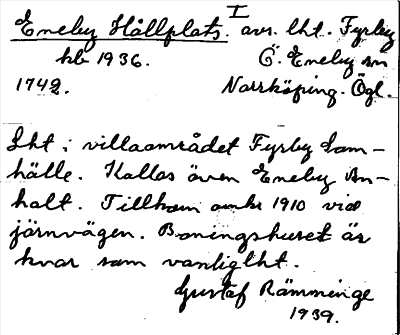 Eneby Hållplats. I avs. lht. Fyrby
hb 1936. Ö. Eneby sn
1742. Norrköping. Ögl.
Lht i villaområdet Fyrby Sam-
hälle. Kallas även Eneby An-
halt. Tillkom omkr 1910 vid
järnvägen. Boningshuset är
kvar som vanlig lht.
Gustaf Rämminge
1939.